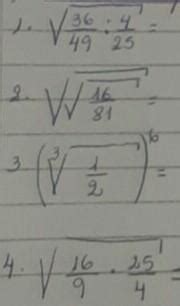 1. √(36/49 : 4/25) =
2. √√(16/81) =
3. (∛(1/2))^6 =
4. √(16/9 · 25/4) =